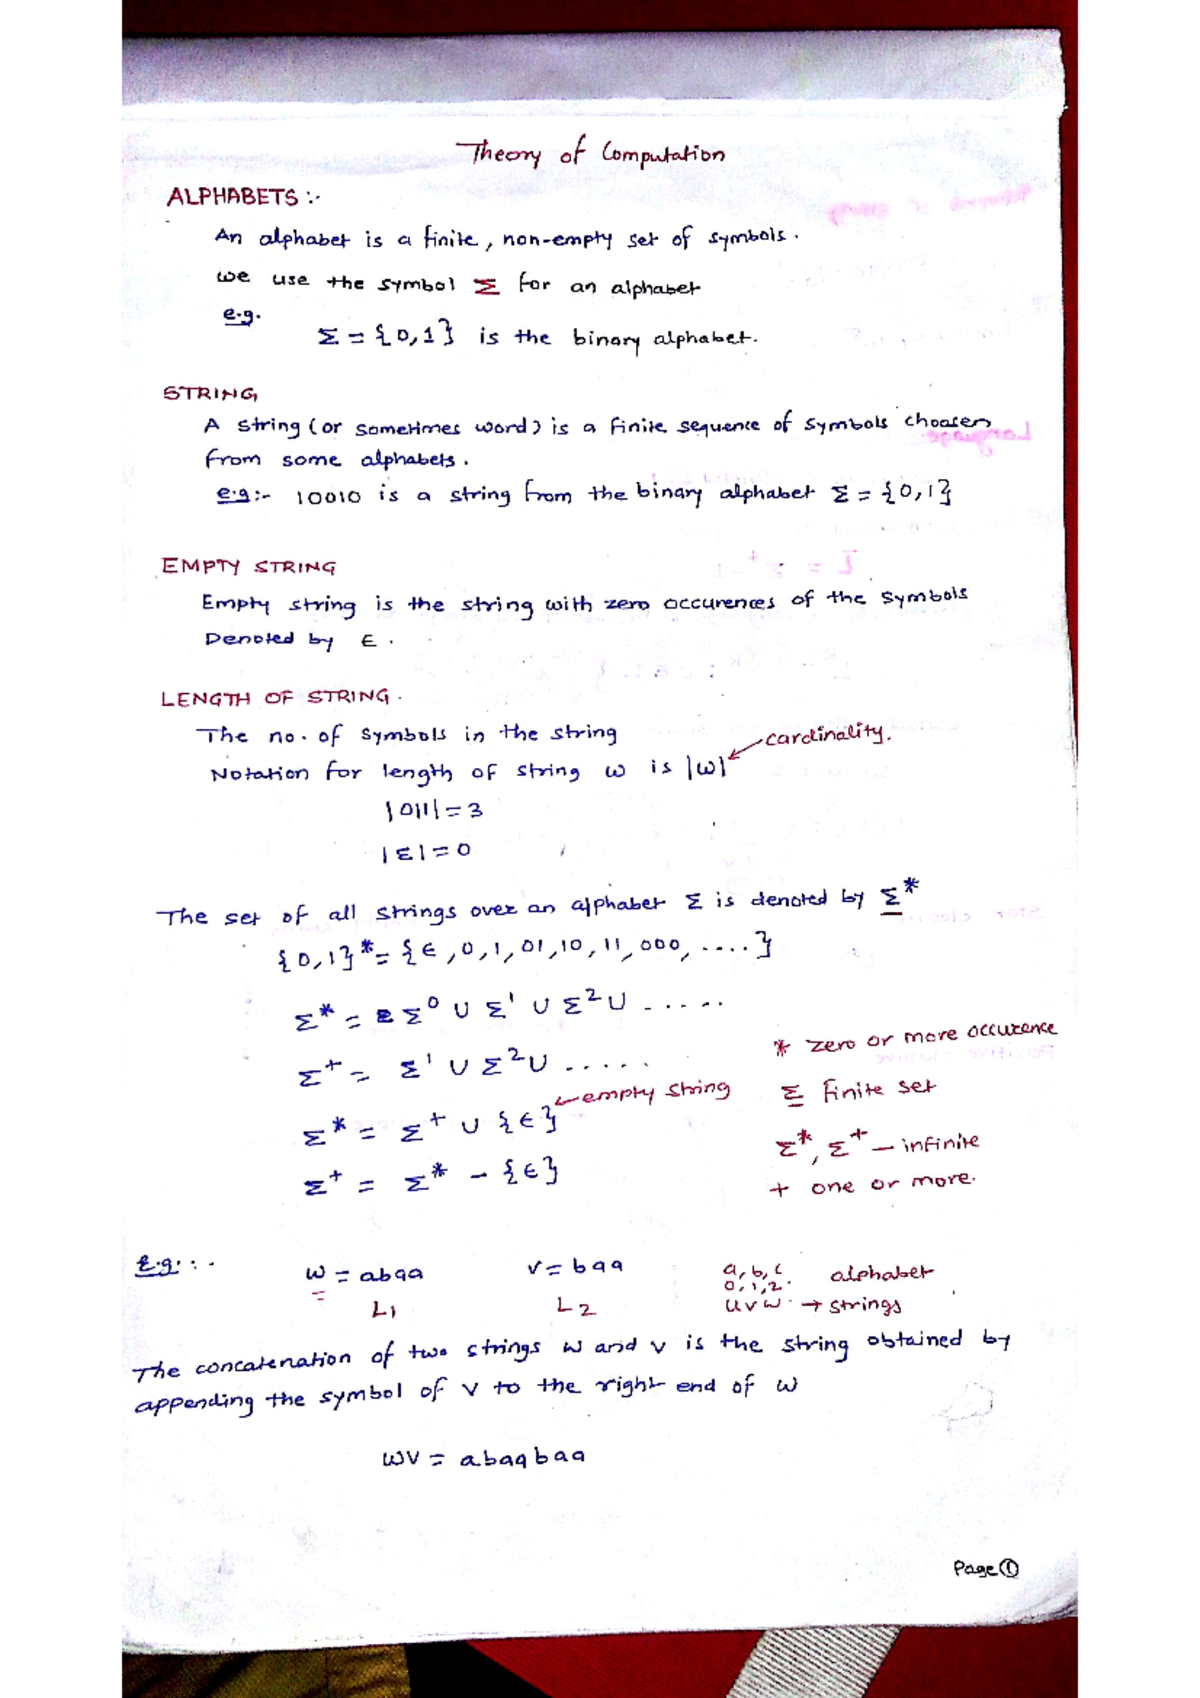 Theory of Computation
ALPHABETS :-
An alphabet is a finite, non-empty set of symbols.
we use the symbol Σ for an alphabet
e.g.
Σ = {0,1} is the binary alphabet.
STRING
A string (or sometimes word) is a finite sequence of symbols choosen
from some alphabets.
e.g:- 10010 is a string from the binary alphabet Σ = {0,1}
EMPTY STRING
Empty string is the string with zero occurences of the symbols
Denoted by ∈.
LENGTH OF STRING.
The no. of symbols in the string
cardinality.
Notation for length of string w is |w|
|011| = 3
|Σ| = 0
The set of all strings over an alphabet Σ is denoted by Σ*
{0,1}* = {∈,0,1,01,10,11,000,....}
Σ* = Σ⁰ ∪ Σ¹ ∪ Σ² ∪ .....
* zero or more occurence
Σ⁺ = Σ¹ ∪ Σ² ∪ .....
← empty string
Σ finite set
Σ* = Σ⁺ ∪ {∈}
Σ*, Σ⁺ – infinite
Σ⁺ = Σ* - {∈}
+ one or more.
E.g.:-
w = abaa v = baa a,b,c alphabet
0,1,2.
L1 L2 u v w. → strings
The concatenation of two strings w and v is the string obtained by
appending the symbol of v to the right end of w
wv = abaabaa
Page ①